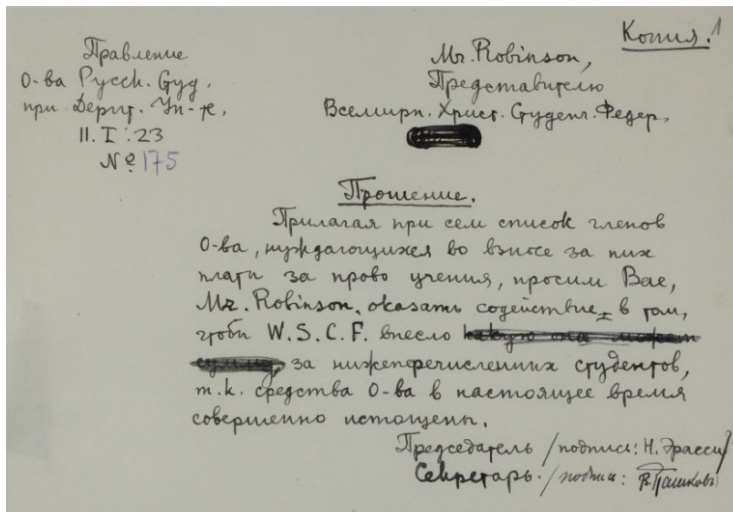 Копия. 1
Правление
О-ва Русск. Студ.
при Дерпт. Ун-те,
11. I. 23
№ 175
Mr. Robinson,
Представителю
Всемирн. Христ. Студенч. Федер.
Прошение.
Прилагая при сем список членов
О-ва, нуждающихся во взносе за них
плати за право учения, просим Вас,
Mr. Robinson, оказать содействие в том,
чтоби W. S. C. F. внесло какую она может
сумму, за нижеперечисленних студентов,
т.к. средства О-ва в настоящее время
совершенно истощены.
Председатель /подпись: Н. Эрасси/
Секретарь. /подпись: Пашков/